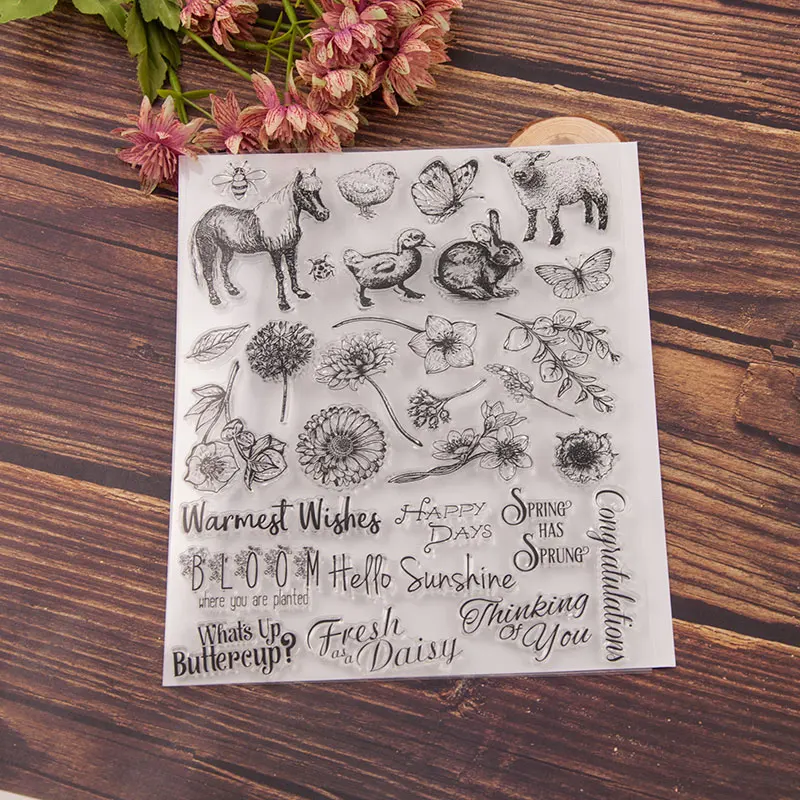 Warmest Wishes
Happy
Days
Spring
has
Sprung
Congratulations
BLOOM
where you are planted
Hello Sunshine
Thinking
of You
What's Up
Buttercup?
Fresh
as a Daisy